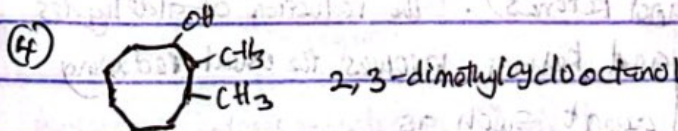 ④
OH
CH3
CH3
2,3-dimethylcyclooctanol